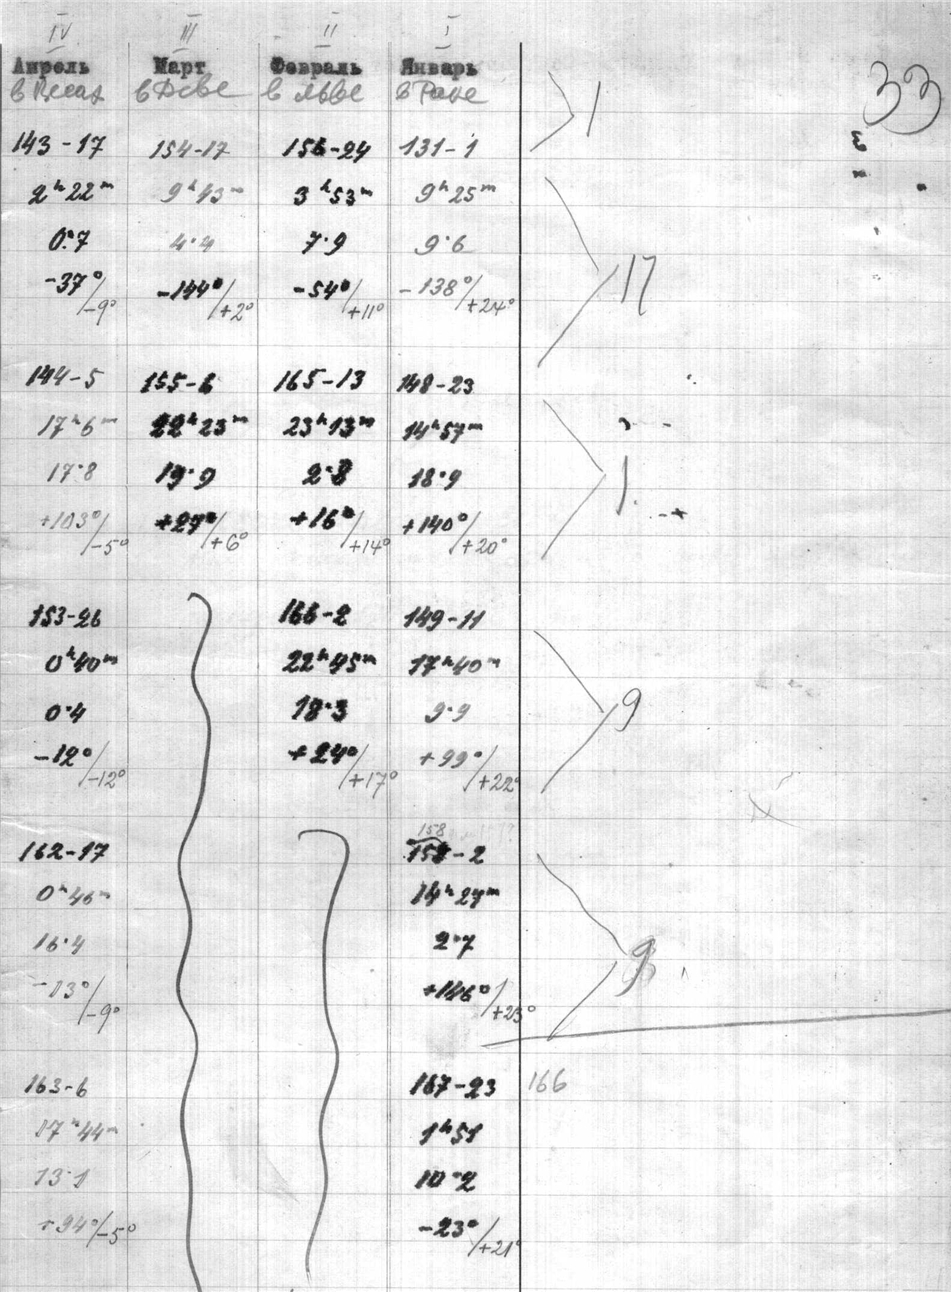 IV III II I
Апрель Март Февраль Январь
в Весах в Деве в Льве в Раке
33
1
143-17 154-17 156-24 131-1
2ʰ22ᵐ 9ʰ43ᵐ 3ʰ53ᵐ 9ʰ25ᵐ
0·7 4·4 7·9 9·6
-37°/-9° -144°/+2° -54°/+11° -138°/+24°
17
144-5 155-6 165-13 148-23
17ʰ6ᵐ 22ʰ23ᵐ 23ʰ13ᵐ 14ʰ57ᵐ
17·8 19·9 2·8 18·9
+103°/-5° +27°/+6° +16°/+14° +140°/+20°
1
153-26 166-2 149-11
0ʰ40ᵐ 22ʰ45ᵐ 17ʰ40ᵐ
0·4 18·3 9·9
-12°/-12° +24°/+17° +99°/+22°
9
158
162-17 158-2
0ʰ46ᵐ 14ʰ27ᵐ
16·4 2·7
-13°/-9° +146°/+23°
9
163-6 167-23 166
17ʰ44ᵐ 1ʰ51
13·1 10·2
+94°/-5° -23°/+21°